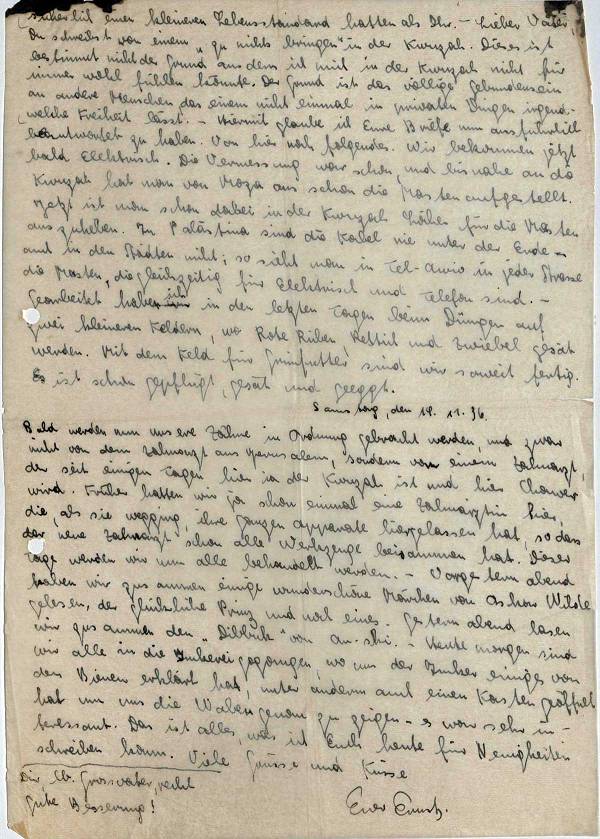 sicherlich einen kleineren Lebensstandard hatten als Ihr. – Lieber Vater,
Du schreibst von einem „zu nichts bringen" in der Kwuzah. Dieses ist
bestimmt nicht der Grund aus dem ich mich in der Kwuzah nicht für
immer wohl fühlen könnte. Der Grund ist das völlige Gebundensein
an andere Menschen das einem nicht einmal in privaten Dingen irgend-
welche Freiheit lässt. – Hiermit glaube ich Eure Briefe nun ausführlich
beantwortet zu haben. Von hier noch folgendes. Wir bekommen jetzt
bald Elektrisch. Die Vermessung war schon, und bis nahe an die
Kwuzah hat man von Moza aus schon die Masten aufgestellt.
Jetzt ist man schon dabei in der Kwuzah Löcher für die Masten
auszuheben. In Palästina sind die Kabel nie unter der Erde –
auch in den Städten nicht; so sieht man in Tel-Awiw in jeder Strasse
die Masten, die gleichzeitig für Elektrisch und Telefon sind. –
Gearbeitet habe ich in den letzten Tagen beim Düngen auf
zwei kleineren Feldern, wo Rote Rüben, Rettich und Zwiebel gesät
werden. Mit dem Feld für Grünfutter sind wir soweit fertig.
Es ist schon gepflügt, gesät und geeggt.
Samstag, den 11.36.
Bald werden nun unsere Zähne in Ordnung gebracht werden, und zwar
nicht von dem Zahnarzt aus Jerusalem, sondern von einem Zahnarzt,
der seit einigen Tagen hier in der Kwuzah ist und hier Chawer
wird. Früher hatten wir ja schon einmal eine Zahnärztin hier,
die, als sie wegging, ihre ganzen Apparate hiergelassen hat, so dass
der neue Zahnarzt schon alle Werkzeuge beisammen hat. Dieser
Tage werden wir nun alle behandelt werden. – Vorgestern abend
haben wir zusammen einige wunderschöne Märchen von Oskar Wilde
gelesen, der glückliche Prinz und noch eines. Gestern abend lasen
wir zusammen den „Dibbuk" von An-ski. – Heute morgen sind
wir alle in die Imkerei gegangen, wo uns der Imker einiges von
den Bienen erklärt hat, unter anderm auch einen Kasten geöffnet
hat um uns die Waben genau zu zeigen – es war sehr in-
teressant. Das ist alles, was ich Euch heute für Neuigkeiten
schreiben kann. Viele Grüsse und Küsse
Dir, lb. Grossvater, recht
gute Besserung!
Euer Ernst.